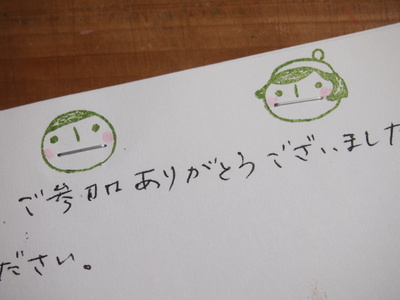 ご参加ありがとうございました
ださい。